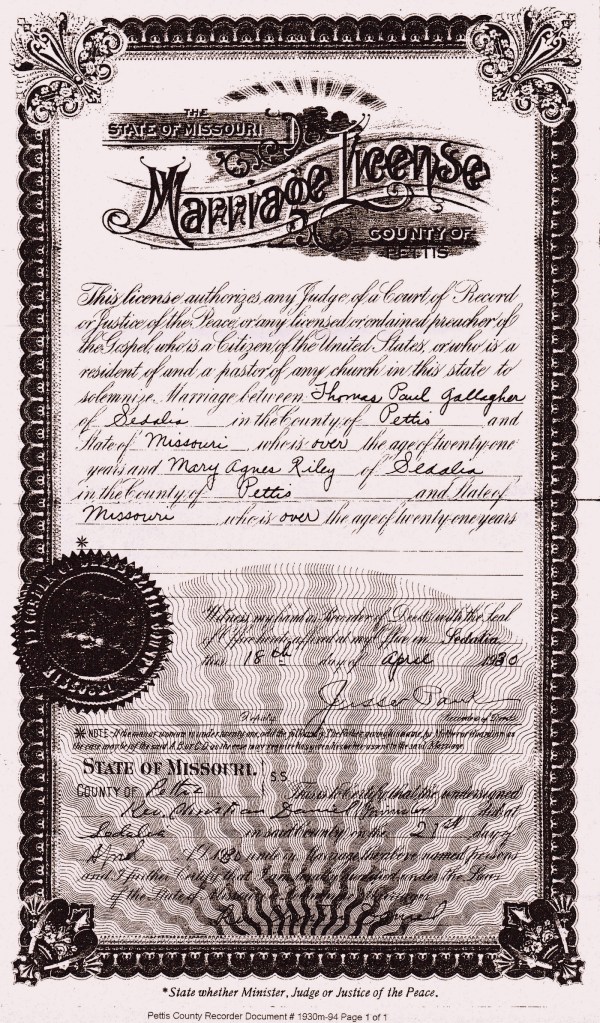 THE
STATE OF MISSOURI
Marriage License
COUNTY OF
PETTIS
This license authorizes any Judge of a Court of Record
or Justice of the Peace, or any licensed or ordained preacher of
the Gospel, who is a Citizen of the United States, or who is a
resident of and a pastor of any church in this state to
solemnize Marriage between Thomas Paul Gallagher
of Sedalia in the County of Pettis and
State of Missouri who is over the age of twenty-one
years and Mary Agnes Riley of Sedalia
in the County of Pettis and State of
Missouri who is over the age of twenty-one years
*
Witness my hand as Recorder of Deeds with the Seal
of Office hereto affixed at my Office in Sedalia
this 18th day of April 1930
Deputy Recorder of Deeds
* NOTE: If the man or woman is under twenty one, add the following
STATE OF MISSOURI. S.S.
COUNTY OF Pettis This is to Certify that the undersigned
Rev. Christian Daniel did at
Sedalia in said County on the day of
April A.D. 1930 unite in Marriage the above named persons
and I further Certify that I am legally qualified under the Laws
of the State of
*State whether Minister, Judge or Justice of the Peace.
Pettis County Recorder Document # 1930m-94 Page 1 of 1